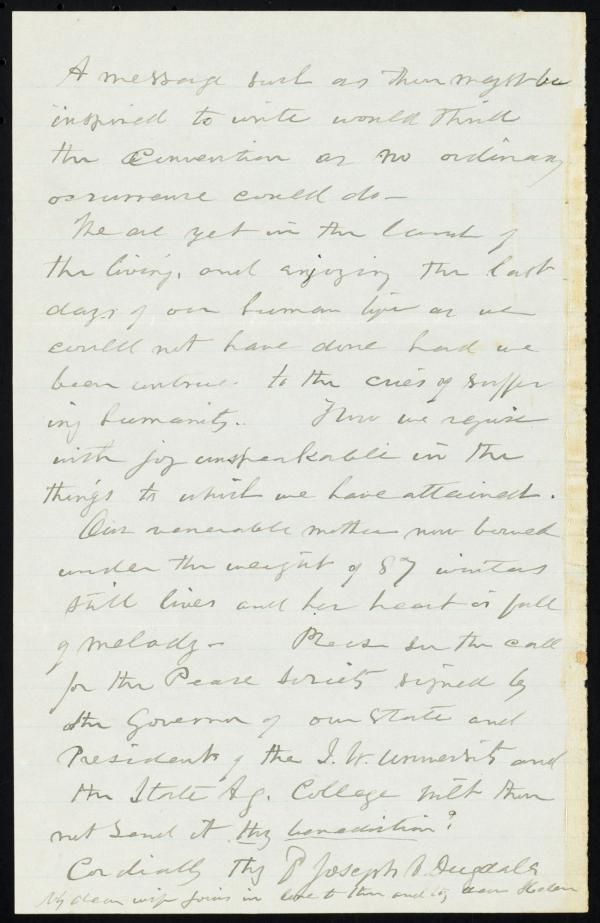 A message such as thou mayst be
inspired to write would thrill
the Convention as no ordinary
occurrence could do—
We are yet in the land of
the living, and enjoying the last
days of our human life as we
could not have done had we
been untrue to the cries of suffer
ing humanity. Now we rejoice
with joy unspeakable in the
things to which we have attained.
Our venerable mother now bowed
under the weight of 87 winters
still lives and her heart is full
of melody— Please see the call
for the Peace Society signed by
the Governor of our State and
Presidents of the I. W. University and
the State Ag. College Wilt thou
not send it thy benediction?
Cordially thy Joseph A. Dugdale
My dear wife joins in love to thee and thy dear Helen